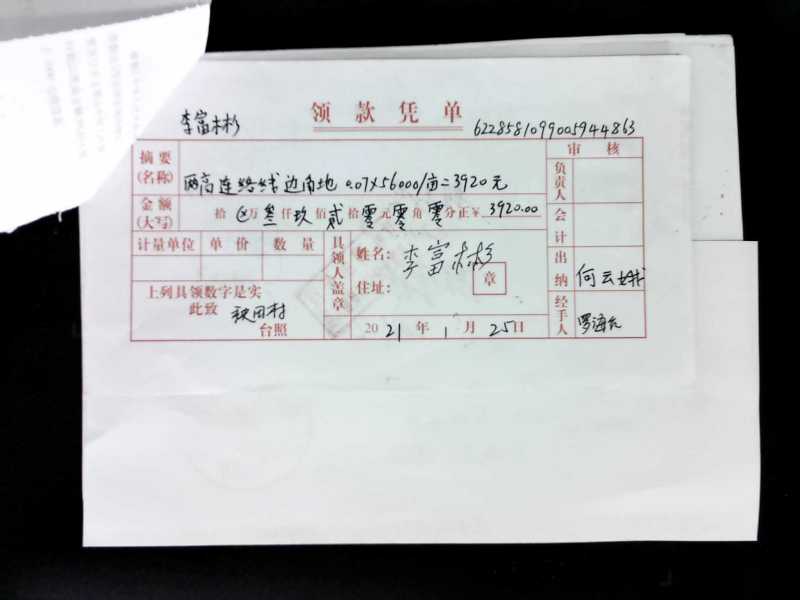 领款凭单
李富彬 6228581099005944863
摘要(名称) 两高连络线边角地 0.07×56000/亩=3920元
审核
负责人
金额(大写) 拾 ⊗万 叁仟玖佰贰拾零元零角零分正¥ 3920.00
会计
计量单位 单价 数量
具领人盖章 姓名: 李富彬
住址: 章
出纳 何云娥
上列具领数字是实
此致 秧田村
台照
2021年1月25日
经手人 罗海